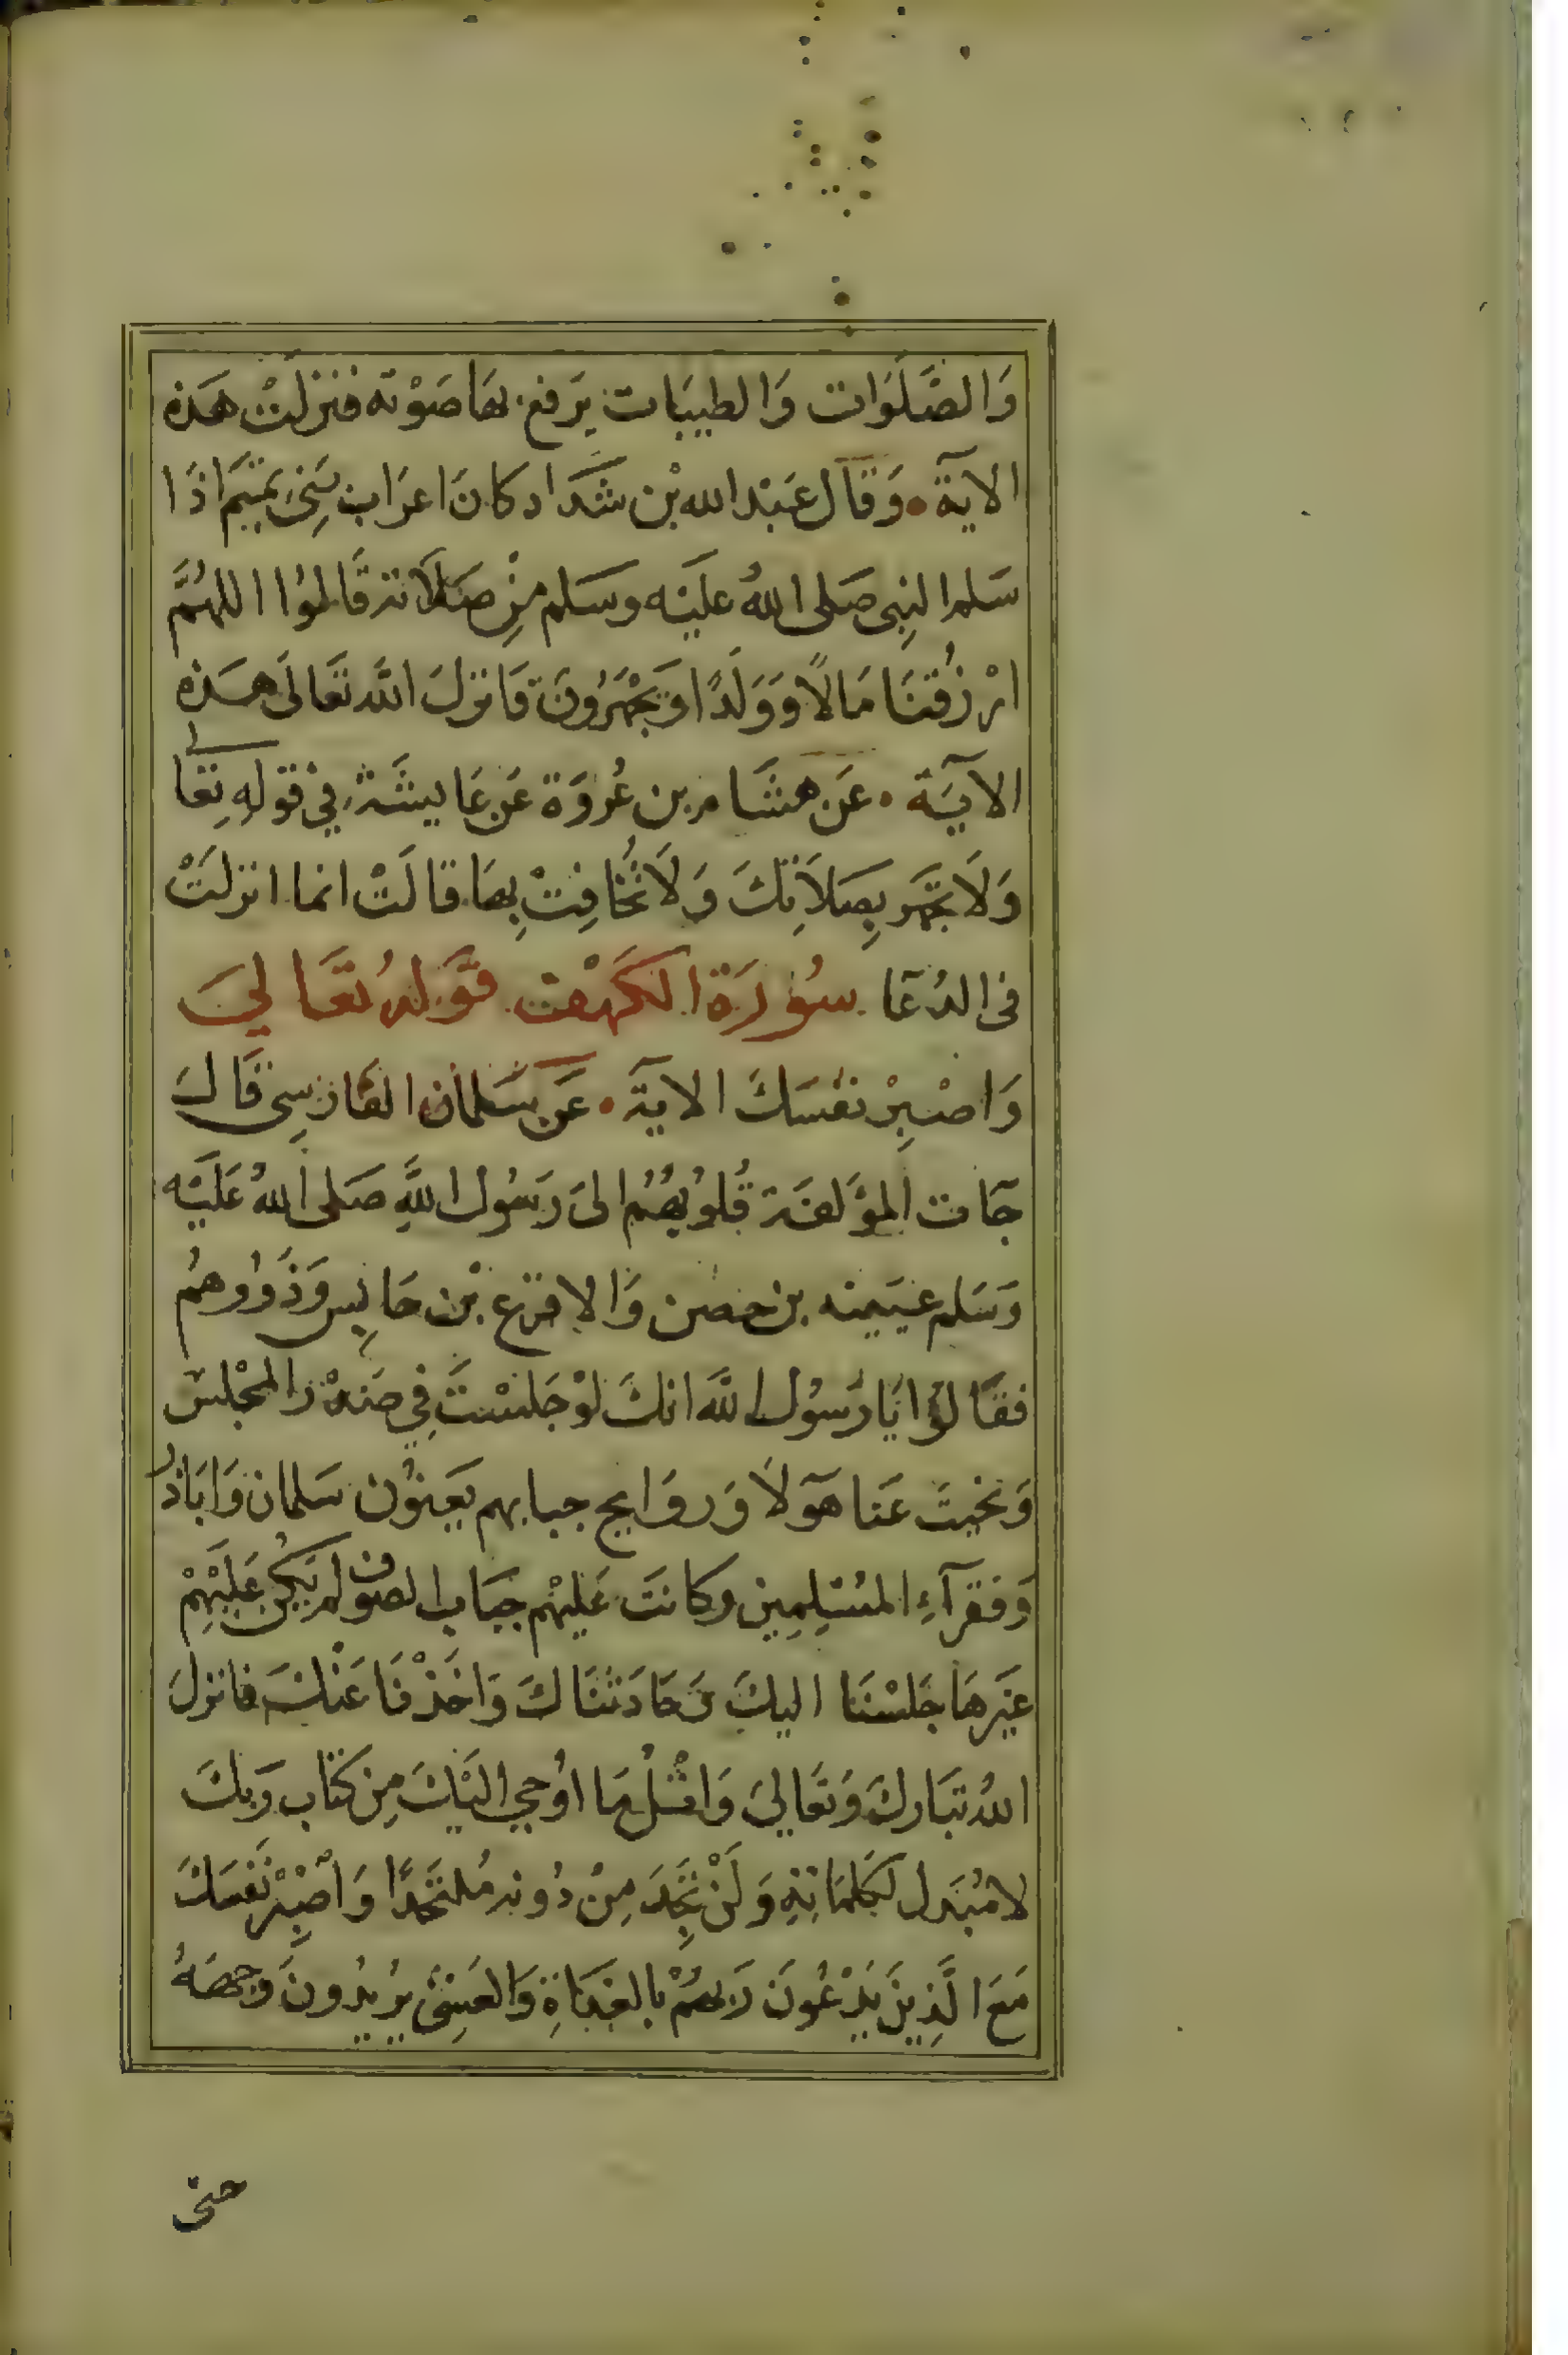 وَالصَّلَوَات وَالطيبَات يَرفع بهَا صَوْته فنزلَتْ هَذه
الآية • وَقال عَبْد الله بْن شَدَاد كانَ اعرَاب بَنِي تميم اذَا
سَلم النبِي صَلى اللهُ عليْه وسَلم مِنْ صَلَاته قَالوُا اللهُمَّ
ارْزُقنَا مَالًا وَوَلَدًا وَيَجْهَرُونَ فَانزلَ اللَّه تَعَالَى هَذه
الآيَة • عَن هشَام بن عُروَة عَن عَايشَة فِي قوْلهِ تعَالى
وَلَا تجهَر بِصَلَاتِكَ وَلَا تُخَافِتْ بِهَا قالَتْ انما انزلَتْ
فى الدُعَا سُورَة الكَهْف قَوْلهُ تعَالىَ
وَاصْبِرْ نفسَكَ الآية • عَن سَلمان الفَارسِى قَالَ
جَات المؤَلفَة قُلوُبهُم الىَ رَسُول اللَّهِ صَلى اللهُ عَلَيْه
وَسَلم عيَينه بن حصن وَالاقرَع بْن حَابِس وَذَوُوهُم
فقَالوُا يَا رَسُول اللَّه انكَ لوْ جَلسْتَ فِي صَدْر المجْلس
وَنحيتَ عَنا هَؤلَا وَروَايح جبابهم يَعنوُن سَلمان وَابَاذر
وَفقرَآءِ المسْلِمِين وكانَت عَليْهم جبَاب الصوف لم يَكُن عَلَيْهِمْ
غيَرهَا جَلسْنَا اليكَ وَحَادَثنَاكَ وَاخَذْنَا عَنْكَ فانزلَ
اللهُ تبَاركَ وَتعَالىَ وَاتْلُ مَا اوُحِي اليْكَ مِن كتَاب رَبكَ
لا مُبَدل لكَلمَاتِهِ وَلَنْ تجِدَ مِنْ دُونه مُلتحَدًا وَاصْبِرْ نَفسَكَ
مَعَ الَّذِينَ يَدْعُونَ رَبهمْ بالغدَاةِ وَالعَشِىِّ يرُيْدُونَ وَجهَهُ
حتى